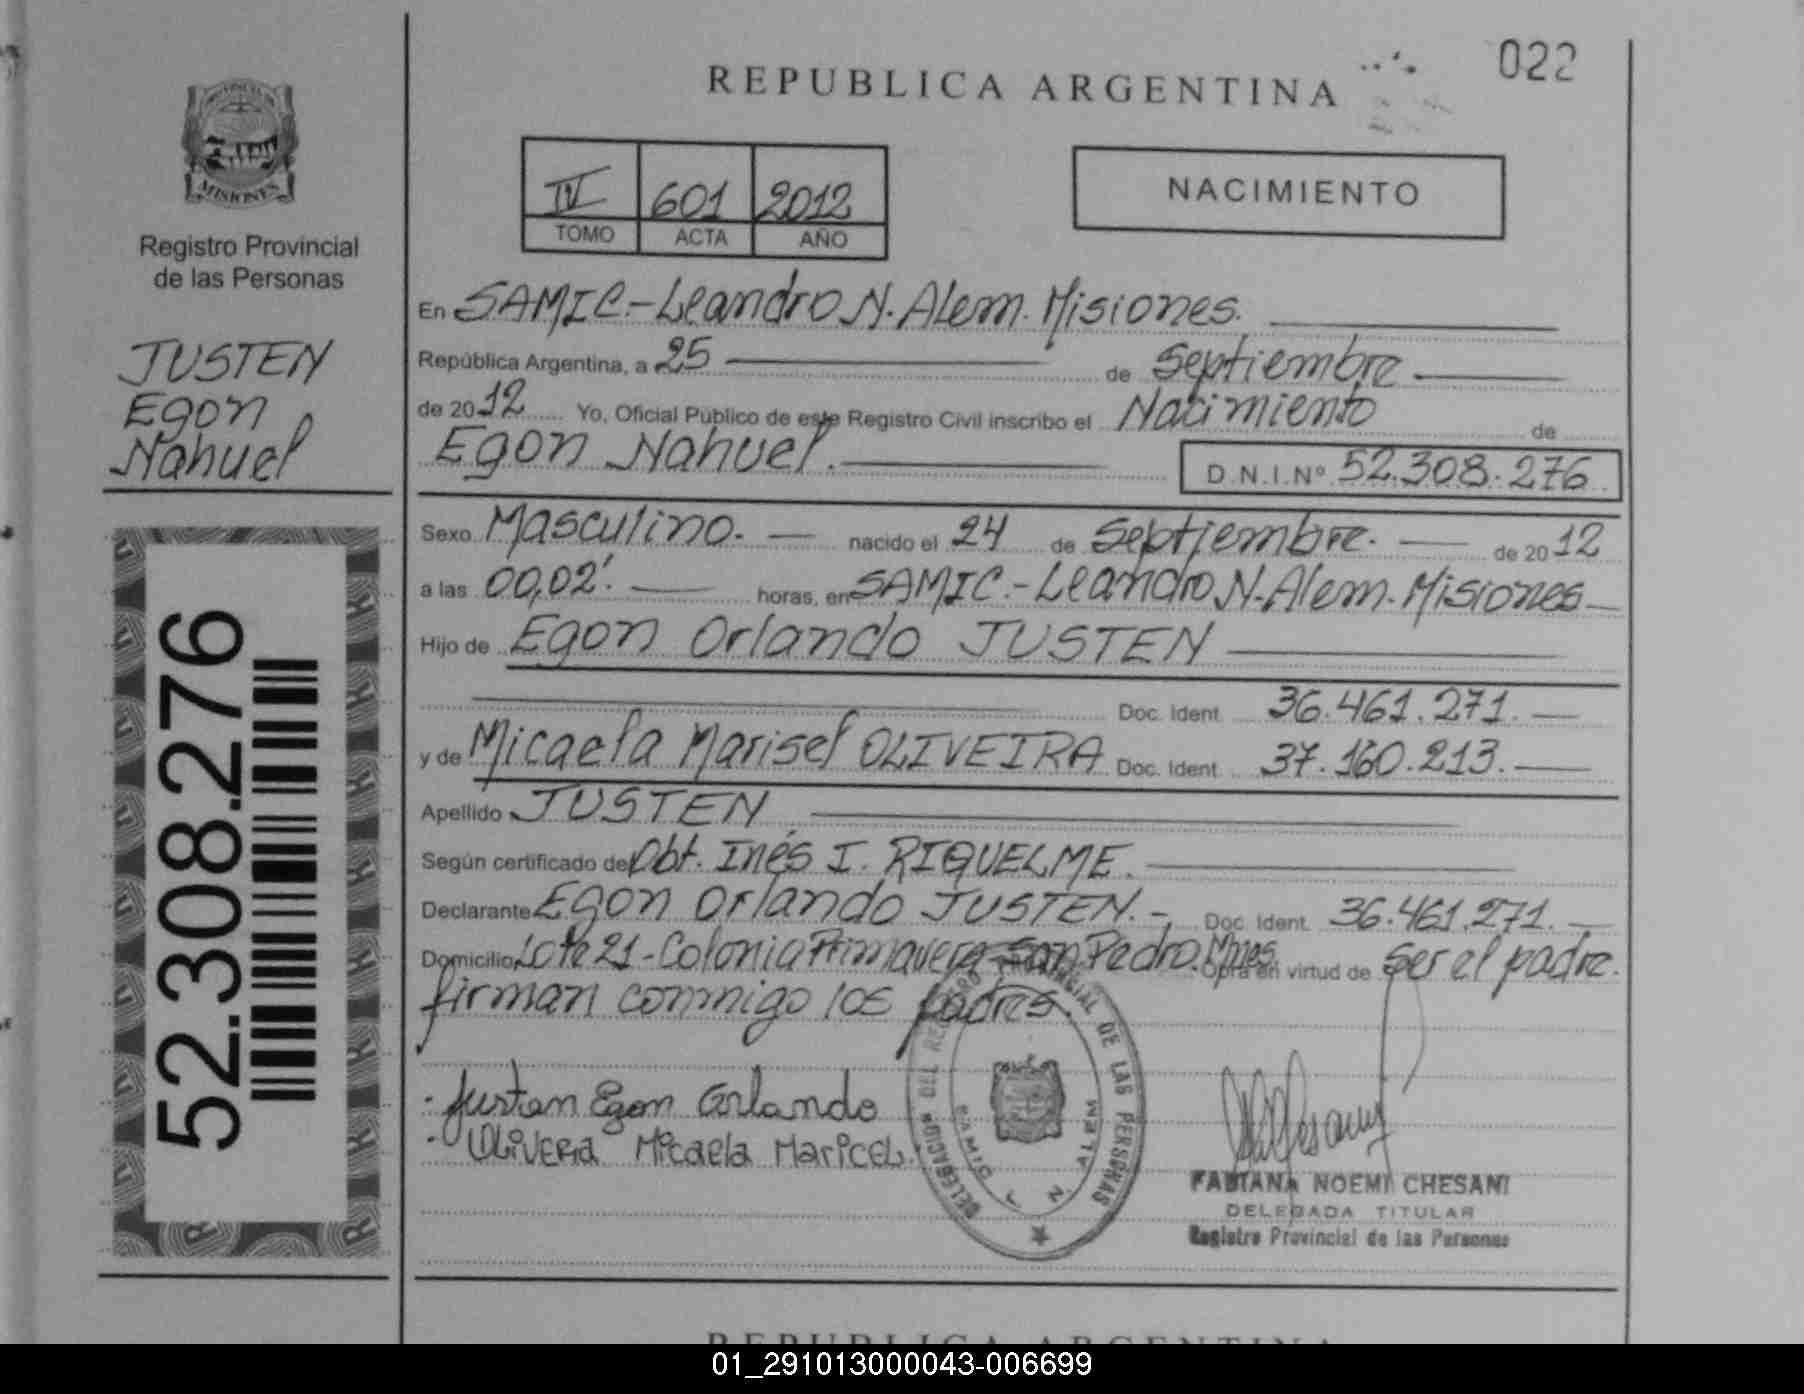 022
REPUBLICA ARGENTINA
PROVINCIA DE
MISIONES
Registro Provincial
de las Personas
JUSTEN
Egon
Nahuel
52.308.276
IV 601 2012
TOMO ACTA AÑO
NACIMIENTO
En SAMIC.-Leandro N. Alem. Misiones.
República Argentina, a 25 de Septiembre
de 2012 Yo, Oficial Público de este Registro Civil inscribo el Nacimiento de
Egon Nahuel. D.N.I.Nº 52.308.276
Sexo Masculino. nacido el 24 de Septiembre. de 2012
a las 00,02'. horas, en SAMIC.-Leandro N. Alem. Misiones
Hijo de Egon Orlando JUSTEN
Doc. Ident. 36.461.271.
y de Micaela Marisel OLIVEIRA Doc. Ident. 37.160.213.
Apellido JUSTEN
Según certificado de Obt. Inés I. RIQUELME.
Declarante Egon Orlando JUSTEN.- Doc. Ident. 36.461.271.
Domicilio Lote 21-Colonia Primavera-San Pedro. Mnes. Obra en virtud de ser el padre.
firman conmigo los padres.
Justen Egon Orlando
Olivera Micaela Maricel.
DELEGACION DEL REGISTRO PROVINCIAL DE LAS PERSONAS
SAMIC L N ALEM
FABIANA NOEMI CHESANI
DELEGADA TITULAR
Registro Provincial de las Personas
REPUBLICA ARGENTINA
01_291013000043-006699